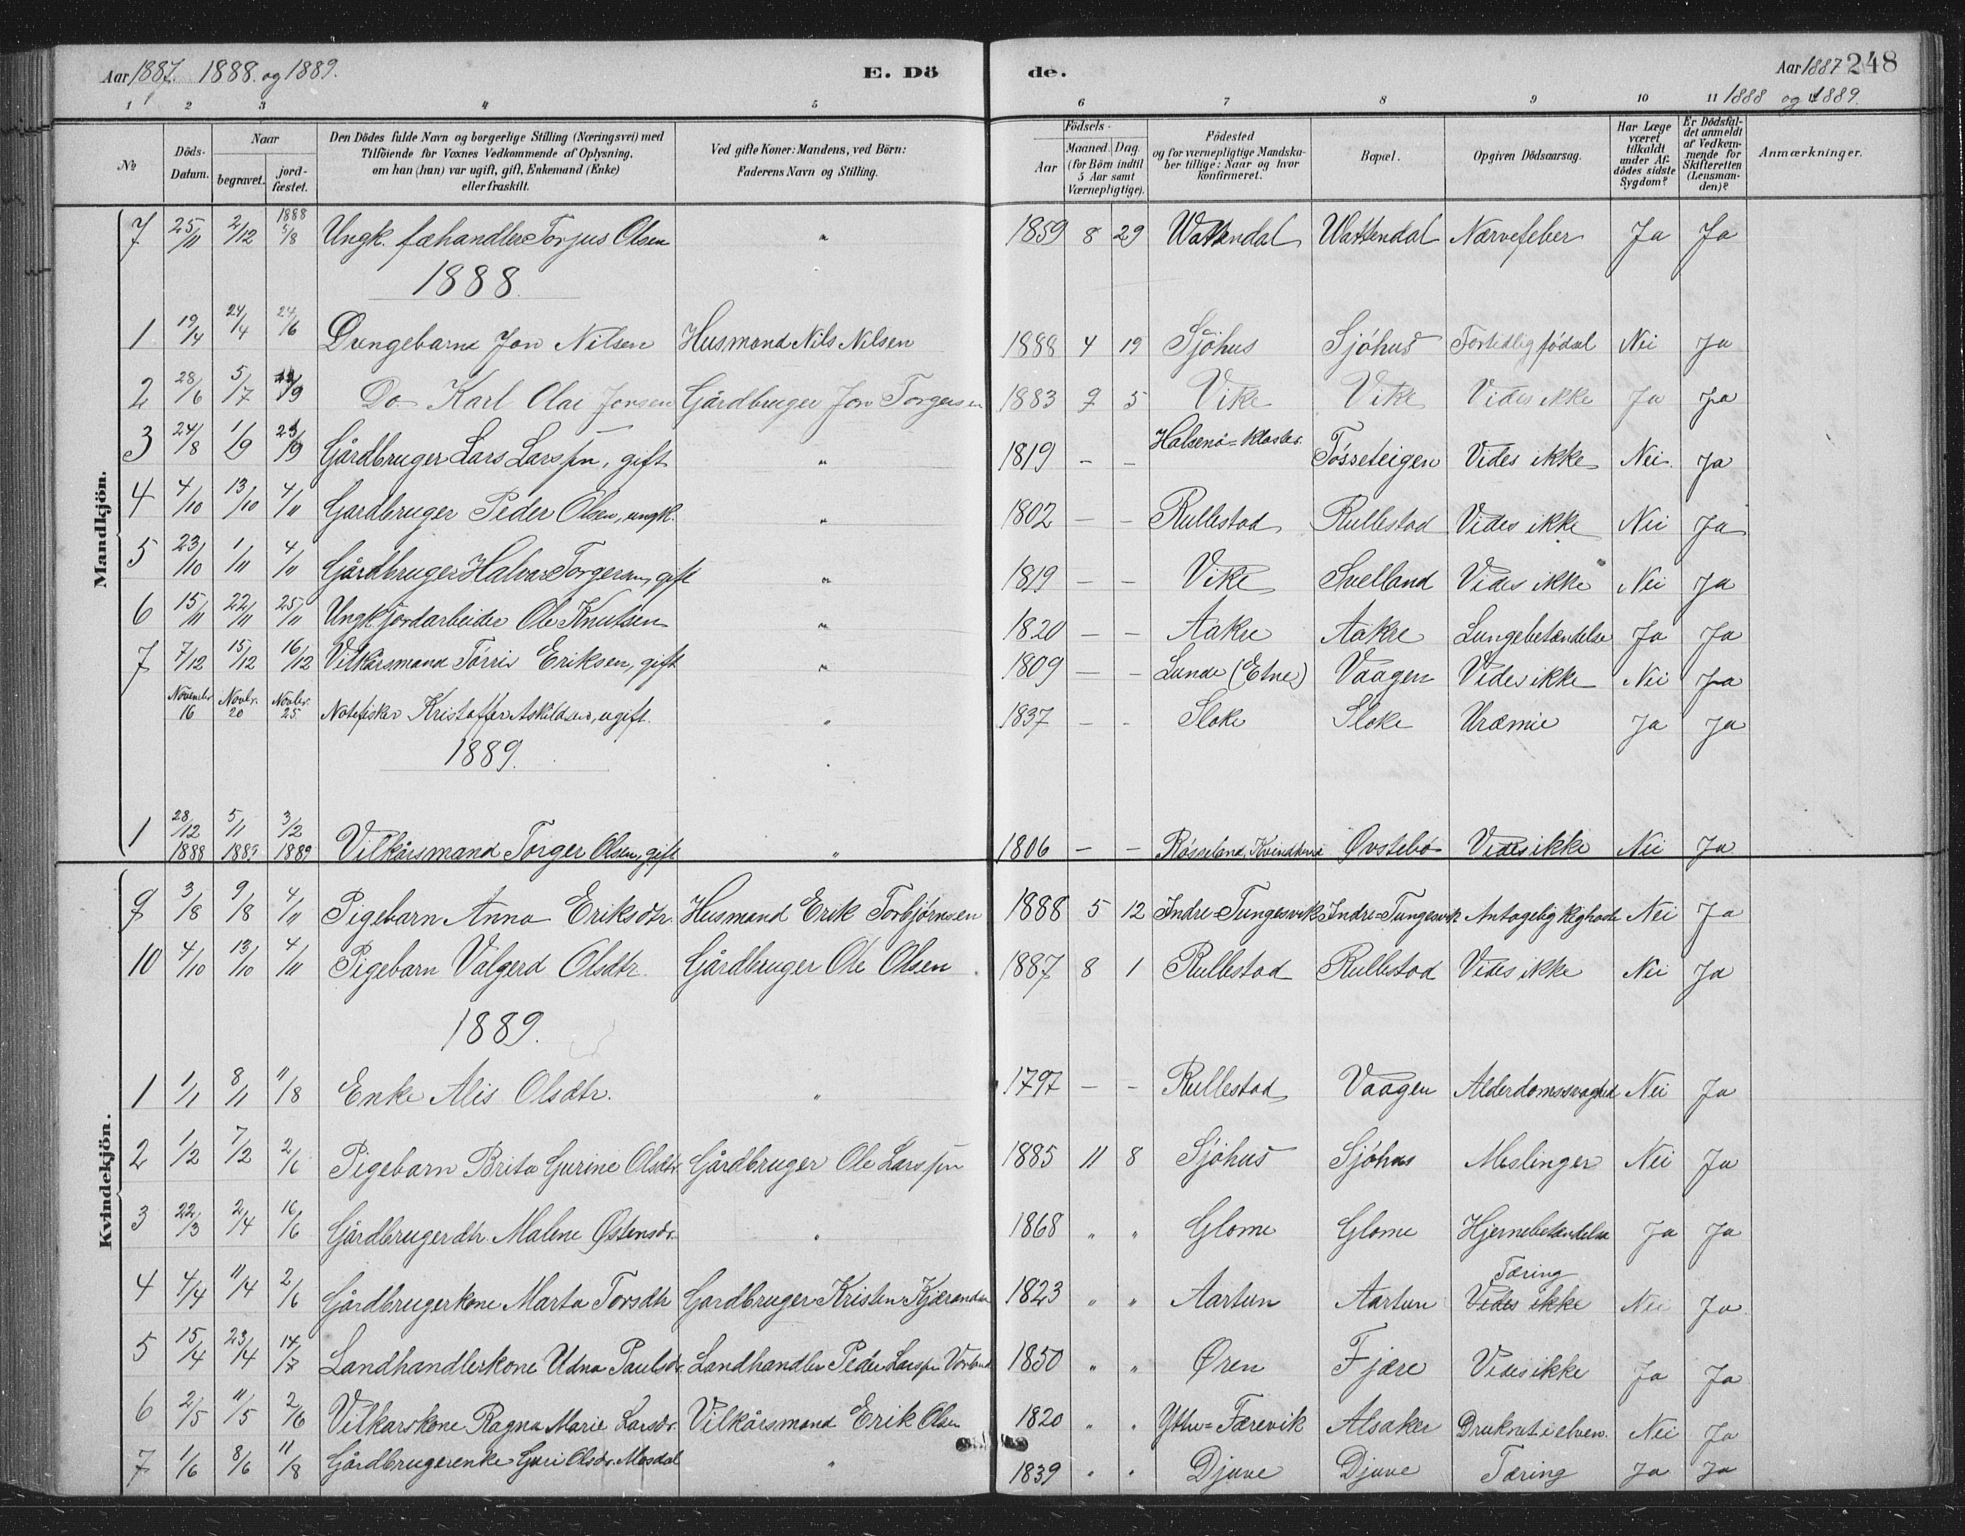 Aar 1887. 1888. og 1889. E. Dö de. Aar 1887 248
1888 og 1889.
1 2 3 4 5 6 7 8 9 10 11
No Döds-Datum. Naar begravet. jordfæstet. Den Dödes fulde Navn og borgerlige Stilling (Næringsvei) med Tilföiende for Voxnes Vedkommende af Oplysning, om han (hun) var ugift, gift, Enkemand (Enke) eller fraskilt. Ved gifte Koner: Mandens, ved Börn: Faderens Navn og Stilling. Födsels- Aar Maaned. Dag. (for Börn indtil 5 Aar samt Værnepligtige). Födested og for værnepligtige Mandskaber tillige: Naar og hvor konfirmeret. Bopæl. Opgiven Dödsaarsag. Har Læge været tilkaldt under Afdödes sidste Sygdom? Er Dödsfaldet anmeldt af Vedkommende for Skifteretten (Lensmanden)? Anmærkninger.
Mandkjön.
7 25/11 2/12 1888 5/8 Ungk. fæhandler Torjus Olsen " 1859 8 29 Wattendal Wattendal Nærvefeber Ja Ja
1888.
1 19/4 24/4 24/6 Drengebarn Jon Nilsen Husmand Nils Nilsen 1888 4 19 Sjöhus Sjöhus Fortidlig fødsel Nei Ja
2 28/6 5/7 /9 Do Karl Olai Jonsen Gårdbruger Jon Torgersen 1883 9 5 Vike Vike Vides ikke Ja Ja
3 24/8 1/9 23/9 Gårdbruger Lars Larssen, gift " 1819 – – Halsenö-Kloster Tösseteigen Vides ikke Nei. Ja
4 4/10 13/10 4/11 Gardbruger Peder Olsen, ungk. " 1802 – – Rullestad Rullestad Vides ikke Nei Ja
5 23/10 1/11 4/11 Gårdbruger Halvar Torgersen, gift " 1819 – – Vike Svelland Vides ikke Nei Ja
6 15/11 22/11 25/11 Ungk jordarbeider Ole Knutsen " 1820 – – Aakre Aakre Lungebetændelse Ja Ja
7 7/12 15/12 16/12 Vilkårsmand Törris Eriksen, gift " 1809 – – Lunde (Etne) Vaagen Vides ikke Nei Ja
November 16 Novbr. 20 Novbr. 25 Notefisker Kristoffer Askildsen, ugift. " 1837 – – Sloke Sloke Uræmie Ja Ja
1889.
1 28/12 1888 5/11 1889 3/2 1889 Vilkårsmand Torger Olsen, gift " 1806 – – Røsseland, Kvindherd Øvstebö Vides ikke Nei Ja
Kvindekjön.
9 3/8 9/8 4/11 Pigebarn Anna Eriksdtr. Husmand Erik Torbjørnsen 1888 5 12 Indre-Tungesvik Indre-Tungesvik Antagelig kighoste Nei Ja
10 4/10 13/10 4/11 Pigebarn Valgerd Olsdtr. Gårdbruger Ole Olsen 1887 8 1 Rullestad Rullestad Vides ikke Nei Ja
1889.
1 1/1 8/1 11/8 Enke Alis Olsdtr. " 1797 – – Rullestad Vaagen Alderdomssvaghed Nei Ja
2 1/2 7/2 2/6 Pigebarn Brita Gurine Olsdtr. Gårdbruger Ole Larssen 1885 11 8 Sjöhus Sjöhus Meslinger Nei Ja
3 22/3 2/4 16/6 Gårdbrugerdtr Malene Østensdr. " 1868 " " Glome Glome Hjernebetændelse Ja Ja
4 4/4 11/4 2/6 Gårdbrugerkone Marta Torsdtr Gardbruger Kristen Kjærandsen 1823 " " Aartun Aartun Tæring Vides ikke Nei Ja
5 15/4 23/4 14/7 Landhandlerkone Udna Paulsdr. Landhandler Peder Larssen 1850 " " Øren Fjære Vides ikke Ja Ja
6 2/5 11/5 2/6 Vilkarskone Ragna Marie Larsdr. Vilkårsmand Erik Olsen 1820 " " Ytre-Færevik Alsaker Druknet i elven. Nei Ja
7 1/6 8/6 11/8 Gårdbrugerenke Guri Olsdr. Mosdal " 1839 " " Djuve Djuve Tæring Ja Ja